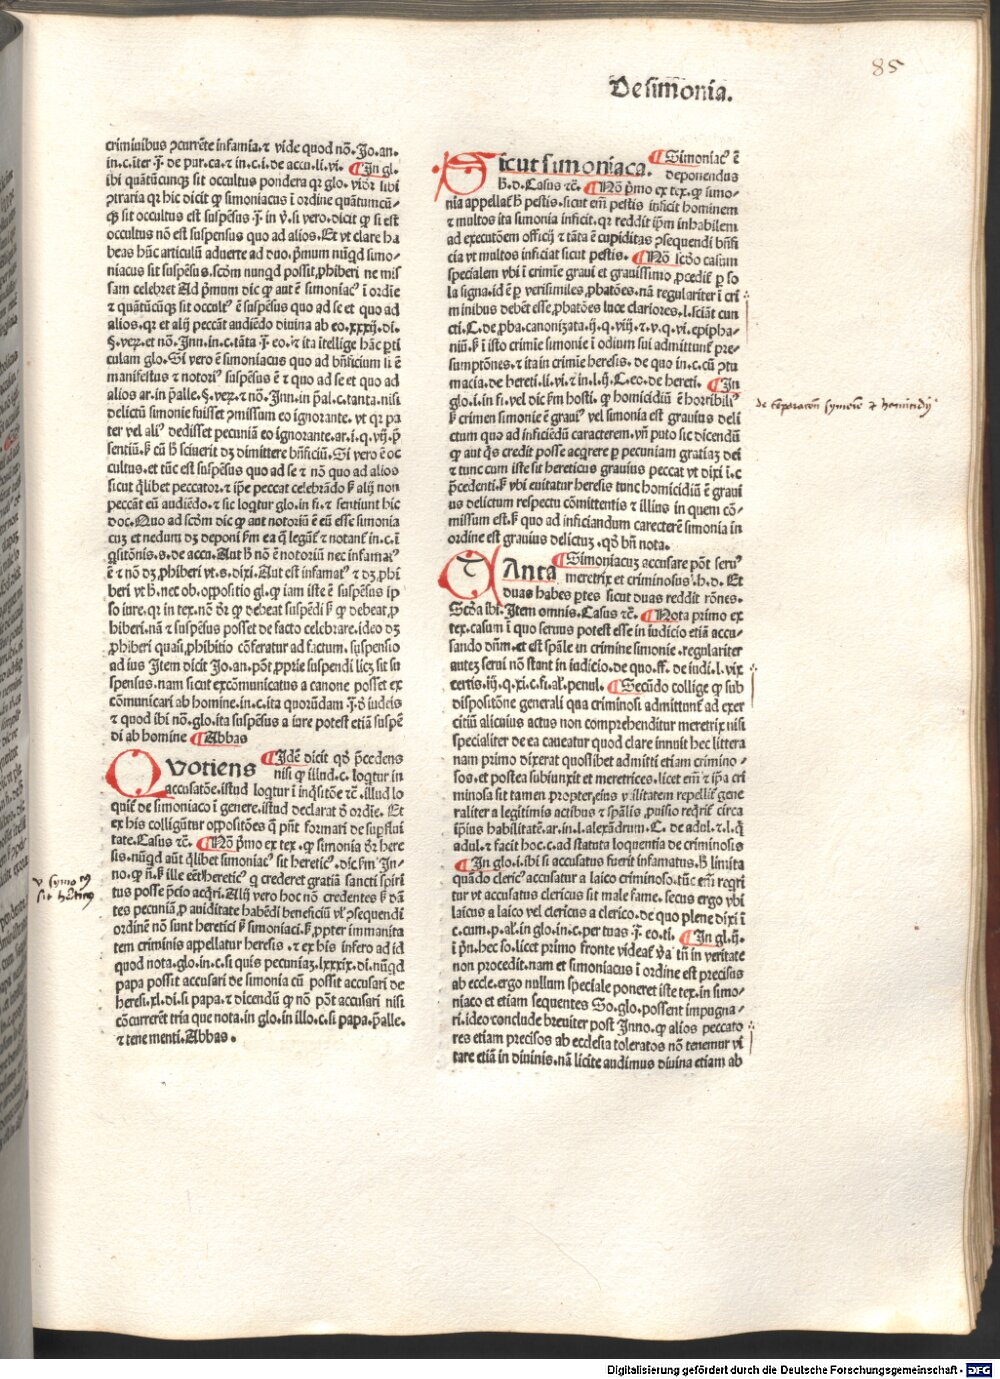 85
De simonia.
criminibus ꝯcurrēte infamia. ⁊ vide quod nō. Jo. an.
in. c. iter ꝭ. de pur. ca. ⁊ in. c. i. de accu. li. vi. ¶ In gl.
ibi quātūcunqꝫ sit occultus pondera qꝛ glo. vidr̄ sibi
ꝯtraria qꝛ hic dicit ꝙ simoniacus ī ordine quātumcū-
qꝫ sit occultus est suspēsus ꝭ. in ꝟ. si vero. dicit ꝙ si est
occultus nō est suspensus quo ad alios. Et vt clare ha
beas hūc articulū aduerte ad duo. p̄mum nūqd simo-
niacus sit suspēsus. scōm nunqd possit ꝓhiberi ne mis
sam celebret Ad p̄mum dic ꝙ aut ē simoniacꝰ ī ordīe
⁊ quātūcūqꝫ sit occultꝰ ē suspēsus quo ad se et quo ad
alios. qꝛ et alij peccāt audiēdo diuina ab eo. xxxij. di.
§. veꝝ. et nō. Inn. in. c. tāta ꝭ. eo. ⁊ ita itellige hāc ꝑti
culam glo. Si vero ē simoniacus quo ad bn̄ficium li ē
manifestus ⁊ notoriꝰ suspēsus ē ⁊ quo ad se et quo ad
alios ar. in p̄alle. §. veꝝ. ⁊ nō. Inn. in p̄al. c. tanta. nisi
delictū simonie fuisset ꝯmissum eo ignorante. vt qꝛ pa
ter vel aliꝰ dedisset pecuniā eo ignorante. ar. i. q. vij. p̄
sentiū. ꝟ cū ħ sciuerit dꝫ dimittere bn̄ficiū. Si vero ē oc
cultus. et tūc est suspēsus quo ad se ⁊ nō quo ad alios
sicut qlibet peccator. ⁊ ip̄e peccat celebrādo ꝟ alij non
peccāt eū audiēdo. ⁊ sic loqtur glo. in fi. ⁊ sentiunt hic
doc. Quo ad scōm dic ꝙ aut notoriū ē eū esse simonia
cuꝫ et nedum dꝫ deponi ꝟm ea q̄ legūtꝰ ⁊ notantꝰ in. c. ī
qsitōnis. s. de accu. Aut ħ nō ē notoriū nec infamatꝰ
ē ⁊ nō dꝫ ꝓhiberi vt. s. dixi. Aut est infamatꝰ ⁊ dꝫ ꝓhi
beri vt ħ. nec ob. oppositio gl. ꝙ iam iste ē suspēsus ip
so iure. qꝛ in tex. nō dr̄ ꝙ debeat suspēdi ꝟ ꝙ debeat ꝓ
hiberi. nā ⁊ suspēsus posset de facto celebrare. ideo dꝫ
ꝓhiberi quasi ꝓhibitio cōferatur ad factum. suspensio
ad ius Item dicit Jo. an. pōt ꝓprie suspendi licꝫ sit su
spensus. nam sicut excōmunicatus a canone posset ex
cōmunicari ab homine. in. c. ita quorūdam ꝭ. ð iudeis
⁊ quod ibi nō. glo. ita suspēsus a iure potest etiā suspē
di ab homine ¶ Abbas
QVotiens ¶ Idē dicit qð p̄cedens
nisi ꝙ illud. c. loqtur in
accusatōe. istud loqtur ī inqsitōe ⁊c̄. illud lo
quitꝰ de simoniaco ī genere. istud declarat ð ordīe. Et
ex his colligūtur oppositōes q̄ pn̄t formari de supflui
tate. Casus ⁊c̄. ¶ Nō p̄mo ex tex. ꝙ simonia dr̄ here
sis. nūqd aūt qlibet simoniacꝰ sit hereticꝰ. dic ꝟm In-
no. ꝙ n̄. ꝟ ille eēt hereticꝰ ꝙ crederet gratiā sancti spiri
tus posse p̄cio acqri. Alij vero hoc nō credentes ꝟ dā
tes pecuniā ꝓ auiditate habēdi beneficiū vl' ꝓsequendi
ordinē nō sunt heretici ꝟ simoniaci. ꝟ ꝓpter immanita
tem criminis appellatur heresis. ⁊ ex his infero ad id
quod nota. glo. in. c. si quis pecuniaꝫ. lxxxix. di. nūqd
papa possit accusari de simonia cū possit accusari de
heresi. xl. di. si papa. ⁊ dicendū ꝙ nō pōt accusari nisi
cōcurrerēt tria que nota. in glo. in illo. c. si papa. p̄alle.
⁊ tene menti. Abbas.
SIcut simoniaca. ¶ Simoniacꝰ ē
deponendus
ħ. d. Casus ⁊c̄. ¶ Nō p̄mo ex tex. ꝙ simo-
nia appellatꝰ ħ pestis. sicut em̄ pestis inficit hominem
⁊ multos ita simonia inficit. qꝛ reddit ip̄m inhabilem
ad executōem officij ⁊ tāta ē cupiditas ꝓsequendi bn̄fi
cia vt multos inficiat sicut pestis. ¶ Nō scdo casum
specialem vbi ī crimīe graui et grauissimo ꝓceditꝰ ꝑ so
la signa. id ē ꝑ verisimiles ꝓbatōes. nā regulariter ī cri
minibus debēt esse ꝓbatōes luce clariores. l. sciāt cun
cti. C. de ꝓba. canonizata. ij. q. viij. ⁊ v. q. vi. epipha-
niū. ꝟ ī isto crimīe simonie ī odium sui admittuntꝰ pre-
sumptōnes. ⁊ ita in crimīe heresis. de quo in. c. cū ꝯtu
macia. de hereti. li. vi. ⁊ in. l. ij. C. eo. de hereti. ¶ In
glo. i. in fi. vel dic ꝟm hosti. ꝙ homicidiū ē horribiliꝰ
ꝟ crimen simonie ē grauiꝰ vel simonia est grauius deli
ctum quo ad inficiēdū caracterem. vn̄ puto sic dicendū
ꝙ aut qs credit posse acqrere ꝑ pecuniam gratiaꝫ dei
⁊ tunc cum iste sit hereticus grauius peccat vt dixi ī. c
p̄cedenti. ꝟ vbi euitatur heresis tunc homicidiū ē graui
us delictum respectu cōmittentis ⁊ illius in quem cō-
missum est. ꝟ quo ad inficiandum carecterē simonia in
ordine est grauius delictuꝫ. qð bn̄ nota.
TAnta ¶ Simoniacuꝫ accusare pōt seruꝰ
meretrix et criminosus. h. d. Et
duas habes ꝑtes sicut duas reddit rōnes.
Scd̄a ibi. Item omnis. Casus ⁊c̄. ¶ Nota primo ex
tex. casum ī quo seruus potest esse in iudicio etiā accu-
sando dn̄m. et est sp̄ale in crimine simonie. regulariter
auteꝫ serui nō stant in iudicio. de quo. ff. de iudi. l. vix
certis. iij. q. xi. c. fi. al'. penul. ¶ Secūdo collige ꝙ sub
dispositōne generali qua criminosi admittuntꝰ ad exer
citiū alicuius actus non comprehenditur meretrix nisi
specialiter de ea caueatur quod clare innuit hec littera
nam primo dixerat quoslibet admitti etiam crimino-
sos. et postea subiunxit et meretrices. licet em̄ ⁊ ip̄a cri
minosa sit tamen propter eius vilitatem repellitꝰ gene
raliter a legitimis actibus ⁊ sp̄alis ꝓuisio reqritꝰ circa
ip̄ius habilitatē. ar. in. l. alexādrum. C. de adul. ⁊ l. q̄
adul. ⁊ facit hoc. c. ad statuta loquentia de criminosis
¶ In glo. i. ibi si accusatus fuerit infamatus. ħ limita
quādo clericꝰ accusatur a laico criminoso. tūc em̄ reqri
tur vt accusatus clericus sit male fame. secus ergo vbi
laicus a laico vel clericus a clerico. de quo plene dixi ī
c. cum. p. al'. in glo. in. c. per tuas ꝭ. eo. ti. ¶ In gl. ij.
ī pn̄. hec so. licet primo fronte videatꝰ ꝟa tn̄ in veritate
non procedit. nam et simoniacus ī ordine est precisus
ab eccle. ergo nullum speciale poneret iste tex. in simo-
niaco et etiam sequentes So. glo. possent impugna-
ri. ideo conclude breuiter post Inno. ꝙ alios peccato
res etiam precisos ab ecclesia toleratos nō tenemur vi
tare etiā in diuinis. nā licite audimus diuina etiam ab
de comparatōe symonie ⁊ homicidij
Digitalisierung gefördert durch die Deutsche Forschungsgemeinschaft - DFG